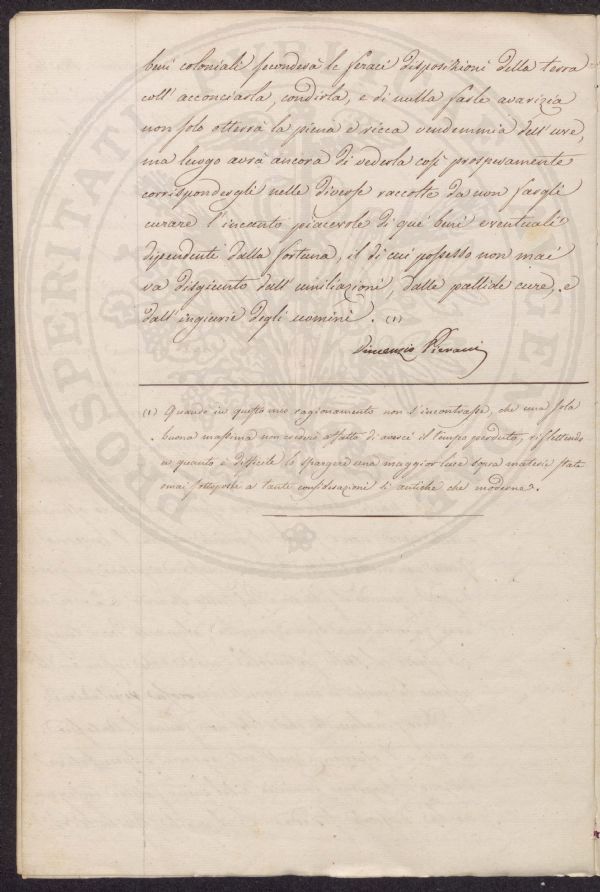 beni coloniali seconderà le feraci disposizioni della terra
coll' acconciarla, condirla, e di nulla farle avarizia
non solo otterrà la piena e ricca vendemmia dell' uve,
ma luogo avrà ancora di vederla così prosperamente
corrispondergli nelle diverse raccolte da non fargli
curare l' incanto piacevole di que' beni eventuali
dipendenti dalla fortuna, il di cui possesso non mai
va disgiunto dall' umiliazioni, dalle pallide cure, e
dall' ingiurie degli uomini. (1)
Vincenzio Pieracci
(1) Quando in questo mio ragionamento non s' incontrasse, che una sola
buona massima non crederei affatto di averci il tempo perduto, riflettendo
a quanto è difficile lo spargere una maggior luce sopra materie state
omai sottoposte a tante considerazioni sì antiche che moderne.
PROSPERITATI